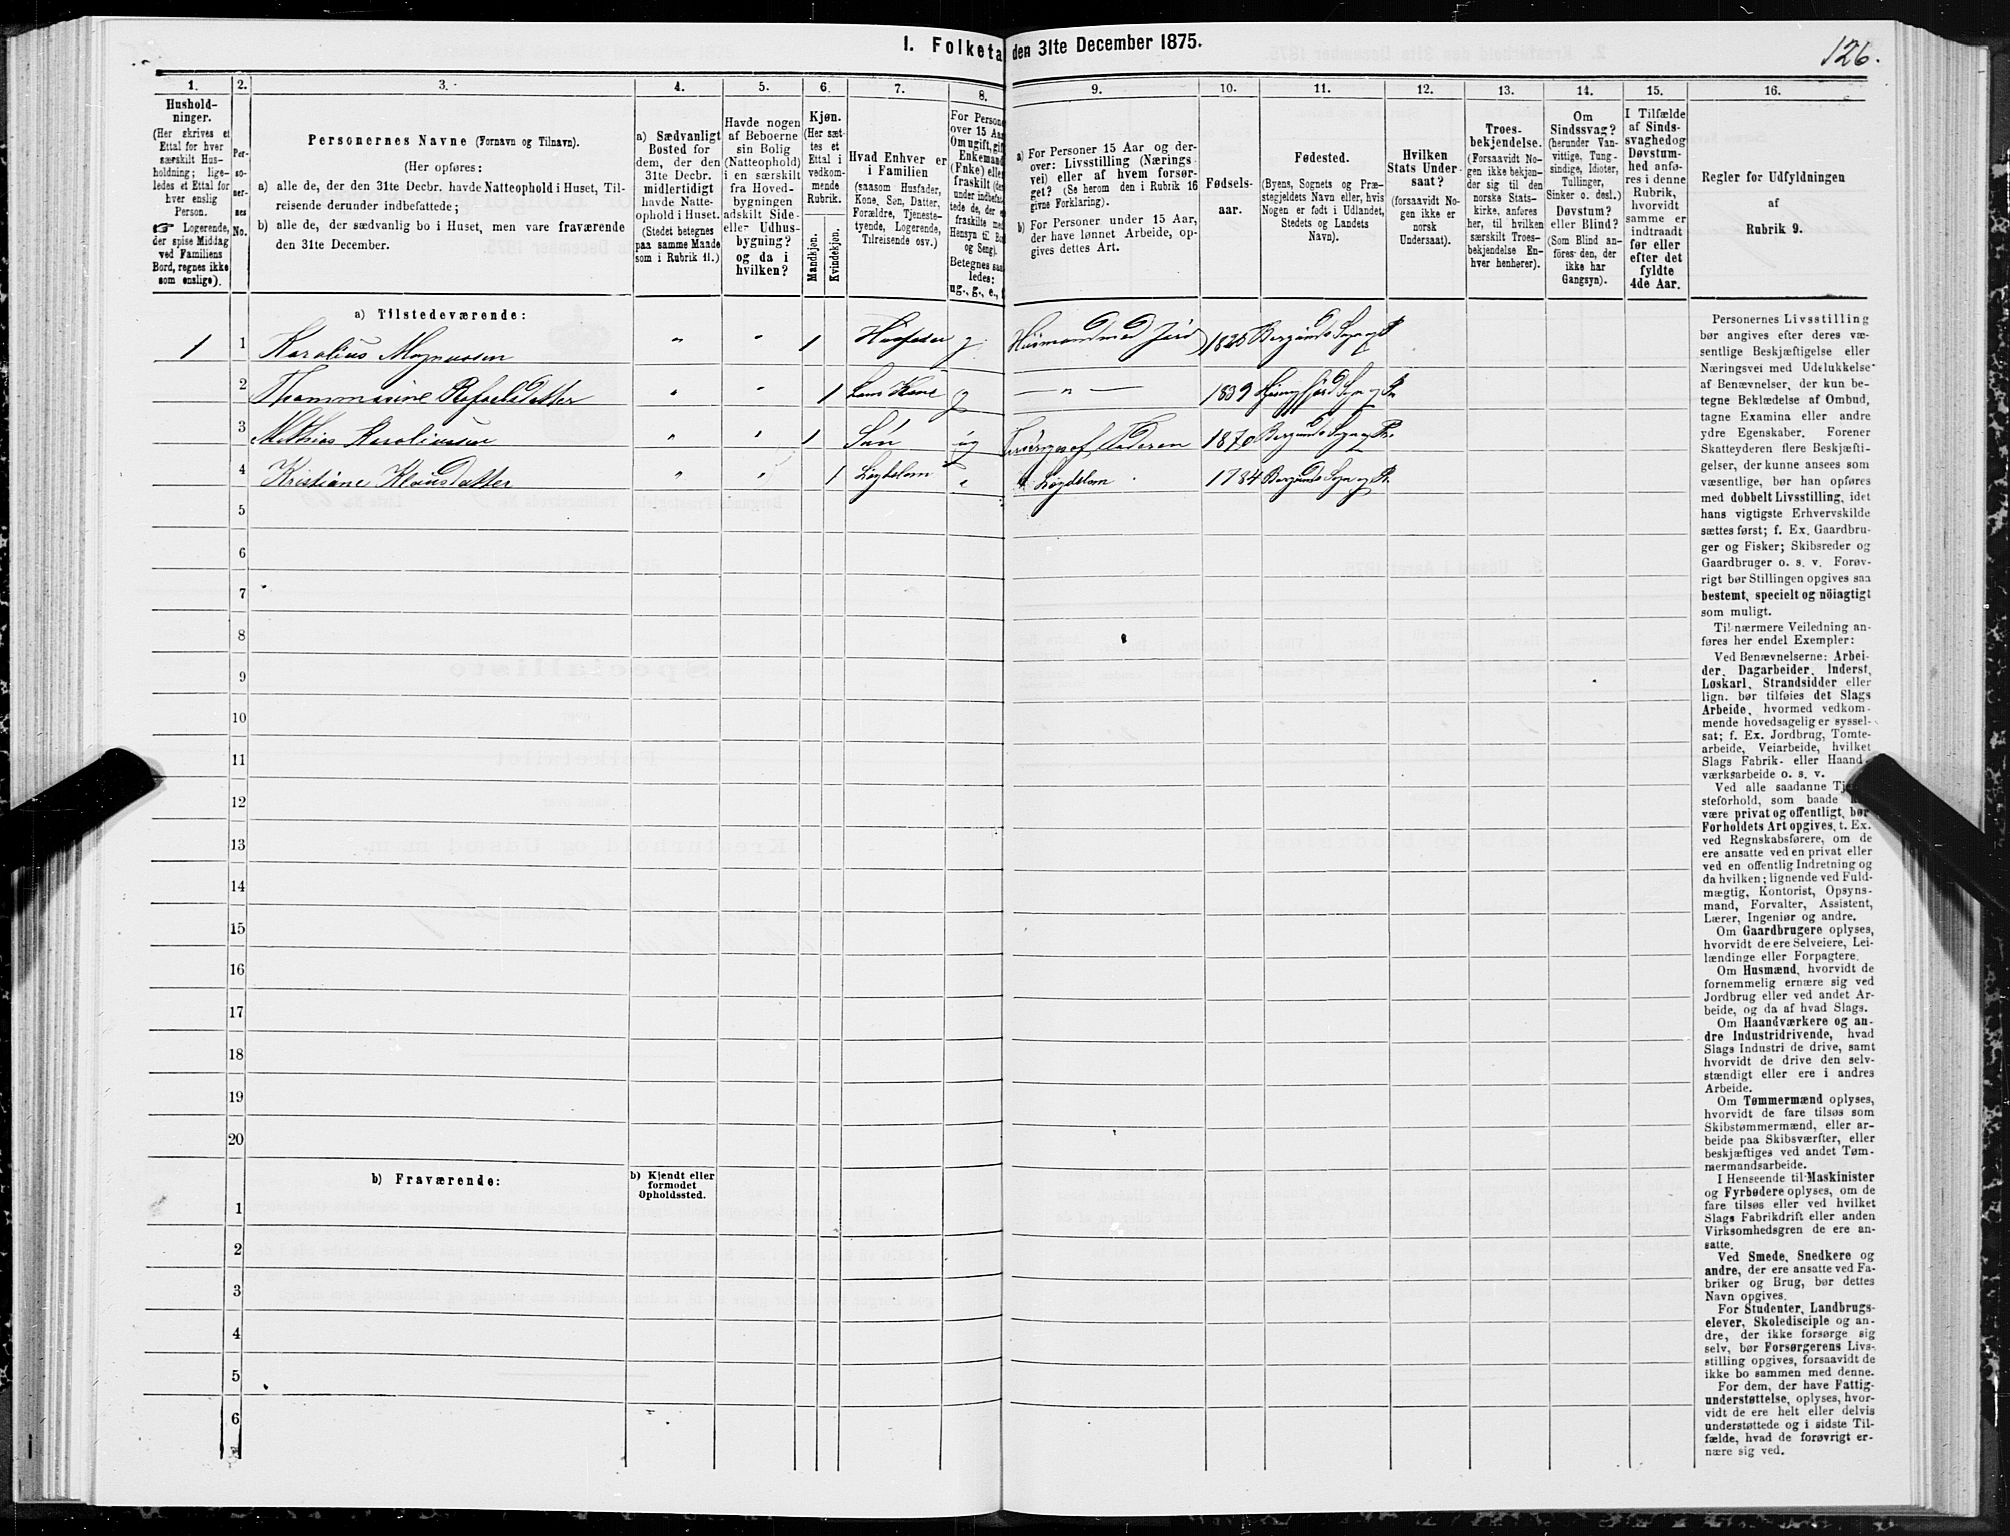 I. Folketa den 31te December 1875.
126.
1.
Hushold-
ninger.
(Her skrives et
Ettal for hver
særskilt Hus-
holdning; lige-
ledes et Ettal for
hver enslig
Person.
☞ Logerende,
der spise Middag
ved Familiens
Bord, regnes ikke
som enslige).
2.
Per-
so-
ner-
nes
No.
3.
Personernes Navne (Fornavn og Tilnavn).
(Her opføres:
a) alle de, der den 31te Decbr. havde Natteophold i Huset, Til-
reisende derunder indbefattede;
b) alle de, der sædvanlig bo i Huset, men vare fraværende
den 31te December.
4.
a) Sædvanligt
Bosted for
dem, der den
31te Decbr.
midlertidigt
havde Natte-
ophold i Huset.
(Stedet betegnes
paa samme Maade
som i Rubrik 11.)
5.
Havde nogen
af Beboerne
sin Bolig
(Natteophold)
i en særskilt
fra Hoved-
bygningen
adskilt Side-
eller Udhus-
bygning?
og da i
hvilken?
6.
Kjøn.
(Her sæt-
tes et
Ettal i
vedkom-
mende
Rubrik.
Mandkjøn.
Kvindekjøn.
7.
Hvad Enhver er
i Familien
(saasom Husfader,
Kone, Søn, Datter,
Forældre, Tjeneste-
tyende, Logerende,
Tilreisende osv.)
8.
For Person
over 15 Aa
Om ugift, gif
Enkemand
(Enke) elle
fraskilt (de
under indbefat-
tede de, der e
fraskilte me
Hensyn til Bo
og Seng).
Betegnes saa
ledes:
ug., g., e.,
9.
a) For Personer 15 Aar og der-
over: Livsstilling (Nærings
vei) eller af hvem forsør-
get? (Se herom den i Rubrik 16
givne Forklaring).
b) For Personer under 15 Aar,
der have lønnet Arbeide, op-
gives dettes Art.
10.
Fødsels-
aar.
11.
Fødested.
(Byens, Sognets og Præ-
stegjeldets Navn eller, hvis
Nogen er født i Udlandet,
Stedets og Landets
Navn).
12.
Hvilken
Stats Under-
saat?
(forsaavidt No-
gen ikke er
norsk
Undersaat).
13.
Troes-
bekjendelse.
(Forsaavidt No-
gen ikke bekjen-
der sig til den
norske Stats-
kirke, anføres
her, til hvilken
særskilt Troes-
bekjendelse En-
hver henhører).
14.
Om
Sindssvag?
(herunder Van-
vittige, Tung-
sindige, Idioter,
Tullinger,
Sinker o. desl.)
Døvstum?
eller Blind?
(Som Blind an-
føres den, der
ikke har
Gangsyn).
15.
I Tilfælde
af Sinds-
svaghed og
Døvstum-
hed anfø-
res i denne
Rubrik,
hvorvidt
samme er
indtraadt
før eller
efter det
fyldte
4de Aar.
16.
Regler for Udfyldningen
af
Rubrik 9.
a) Tilstedeværende:
1 1 Karolius Magnussen " " 1 Husfader g Husmand med Jord 1825 Borgunds Sogn og Pr
2 Thommasine Rafaelsdatter " " 1 hans Kone g — " — 1839 Sogn og Pr
3 Mathias Karoliussen " " 1 Søn ug Forsørges af Faderen 1870 Borgunds Sogn og Pr.
4 Kristiane Klausdatter " " 1 Lægdslem " Lægdslem 1784 Borgunds Sogn og Pr.
5
6
7
8
9
10
11
12
13
14
15
16
17
18
19
20
b) Fraværende:
b) Kjendt eller
formodet
Opholdssted.
1
2
3
4
5
6
Personernes Livsstilling
bør angives efter deres væ-
sentlige Beskjæftigelse eller
Næringsvei med Udelukkelse
af Benævnelser, der kun be-
tegne Beklædelse af Ombud,
tagne Examina eller andre
ydre Egenskaber. Forener
Skatteyderen flere Beskjæfti-
gelser, der kunne ansees som
væsentlige, bør han opføres
med dobbelt Livsstilling, idet
hans vigtigste Erhvervskilde
sættes først; f. Ex. Gaardbru-
ger og Fisker; Skibsreder og
Gaardbruger o. s. v. Forøv-
rigt bør Stillingen opgives saa
bestemt, specielt og nöiagtigt
som muligt.
Til nærmere Veiledning an-
føres her endel Exempler:
Ved Benævnelserne: Arbei-
der, Dagarbeider, Inderst,
Løskarl, Strandsidder eller
lign. bør tilføies det Slags
Arbeide, hvormed vedkom-
mende hovedsagelig er syssel-
sat; f. Ex. Jordbrug, Tomte-
arbeide, Veiarbeide, hvilket
Slags Fabrik- eller Haand-
værksarbeide o. s. v.
Ved alle saadanne Tj
steforhold, som baade
være privat og offentligt, bør
Forholdets Art opgives, t. Ex.
ved Regnskabsførere, om de
ere ansatte ved en privat eller
ved en offentlig Indretning og
da hvilken; lignende ved Fuld-
mægtig, Kontorist, Opsyns-
mand, Forvalter, Assistent,
Lærer, Ingeniør og andre.
Om Gaardbrugere oplyses,
hvorvidt de ere Selveiere, Lei-
lændinge eller Forpagtere.
Om Husmænd, hvorvidt de
fornemmelig ernære sig ved
Jordbrug eller ved andet Ar-
beide, og da af hvad Slags.
Om Haandværkere og an-
dre Industridrivende, hvad
Slags Industri de drive, samt
hvorvidt de drive den selv-
stændigt eller ere i andres
Arbeide.
Om Tømmermænd oplyses,
hvorvidt de fare tilsøs som
Skibstømmermænd, eller ar-
beide paa Skibsværfter, eller
beskjæftiges ved andet Tøm-
mermandsarbeide.
I Henseende til Maskinister
og Fyrbødere oplyses, om de
fare tilsøs eller ved hvilket
Slags Fabrikdrift eller anden
Virksomhedsgren de ere an-
satte.
Ved Smede, Snedkere og
andre, der ere ansatte ved Fa-
briker og Brug, bør dettes
Navn opgives.
For Studenter, Landbrugs-
elever, Skoledisciple og an-
dre, der ikke forsørge sig
selv, bør Forsørgerens Livs-
stilling opgives, forsaavidt de
ikke bo sammen med denne.
For dem, der have Fattig-
understøttelse, oplyses, hvor-
vidt de ere helt eller delvis
understøttede og i sidste Til-
fælde, hvad de forøvrigt er-
nære sig ved.